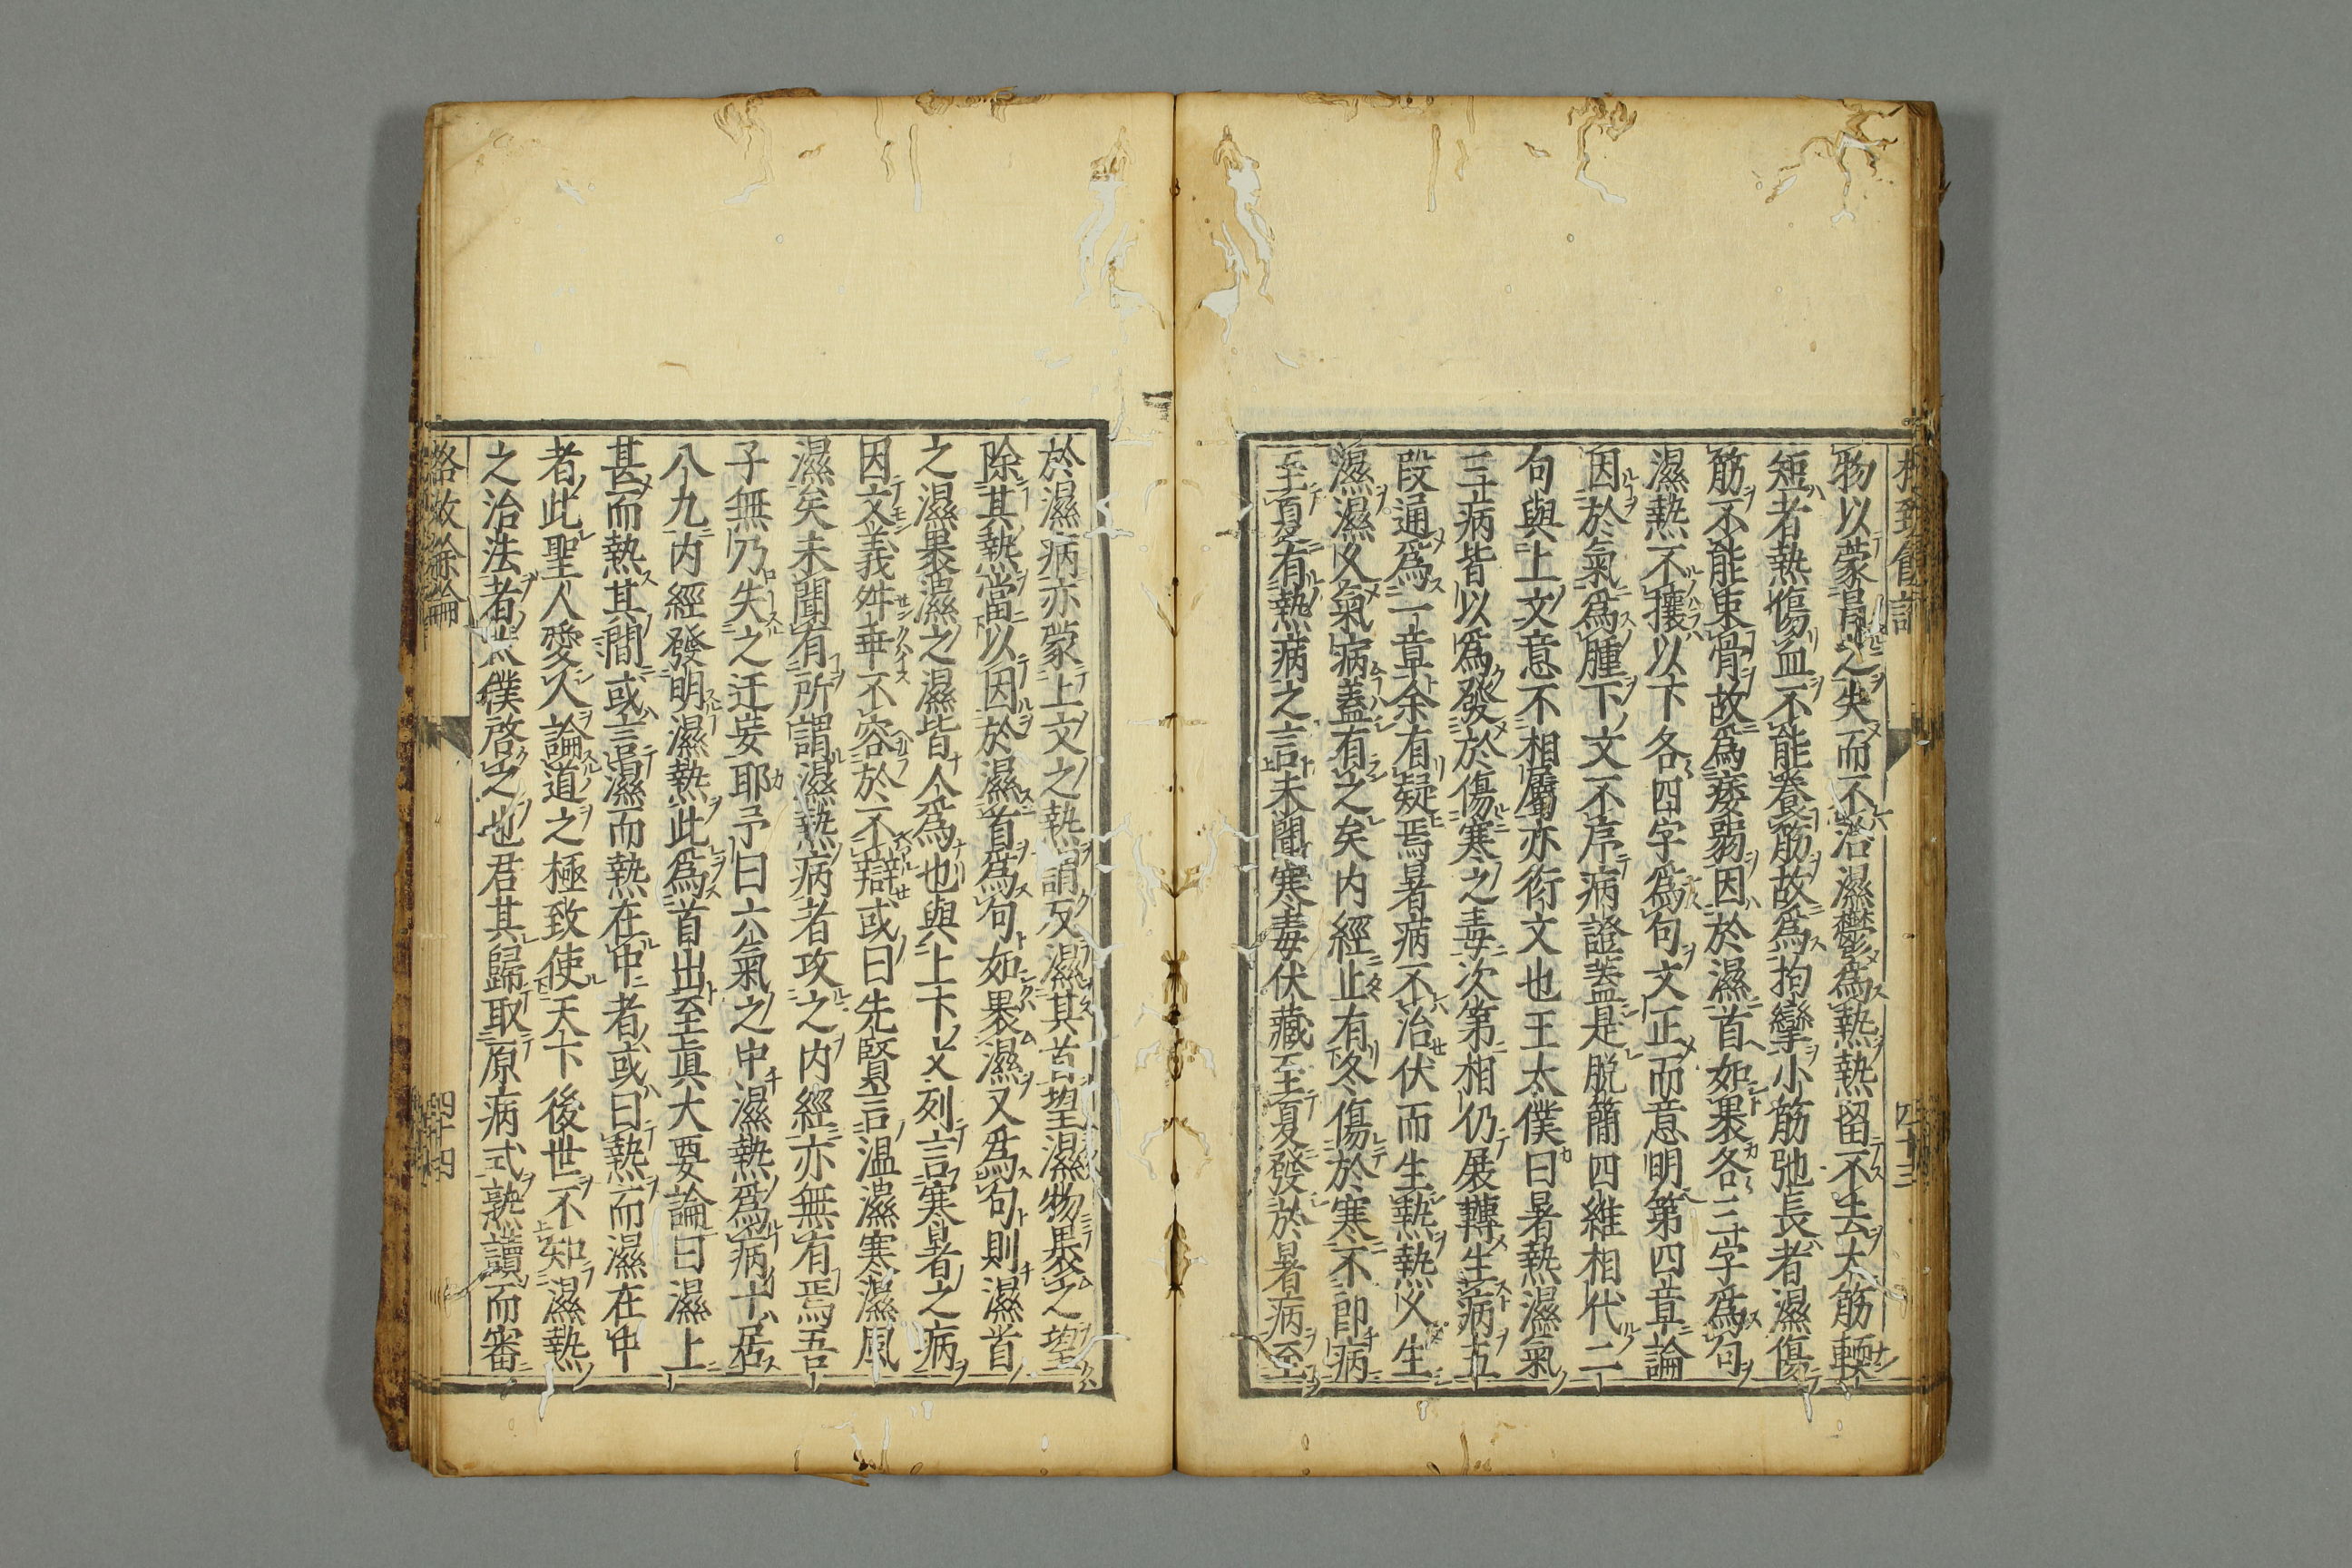 物以蒙冒之失而不治濕鬱爲熱熱留不去大筋軟
短者熱傷血不能養筋故爲拘攣小筋弛長者濕傷
筋不能束骨故爲痿弱因於濕首如裹各三字爲句
濕熱不攘以下各四字爲句文正而意明第四章論
因於氣爲腫下文不序病證蓋是脫簡四維相代二
句與上文意不相屬亦衍文也王太僕曰暑熱濕氣
三病皆以爲發於傷寒之毒次第相仍展轉生病五
段通爲一章余有疑焉暑病不治伏而生熱熱乆生
濕濕乆氣病蓋有之矣内經止有冬傷於寒不即病
至夏有熱病之言未聞寒毒伏藏至夏發於暑病至
四十三
於濕病亦蒙上文之熱謂反濕其首若濕物裹之望
除其熱當以因於濕首爲句如裹濕又爲句則濕首
之濕裹濕之濕皆人爲也與上下文列言寒暑之病
因文義舛乖不容於不辯或曰先賢言温濕寒濕風
濕矣未聞有所謂濕熱病者攻之内經亦無有焉吾
子無乃失之迂妄耶予曰六氣之中濕熱爲病十居
八九内經發明濕熱此爲首出至眞大要論曰濕上
甚而熱其間或言濕而熱在中者或曰熱而濕在中
者此聖人愛人論道之極致使天下後世不知濕熱
之治法者僕啓之也君其歸取原病式熟讀而審
格致餘論
四十四